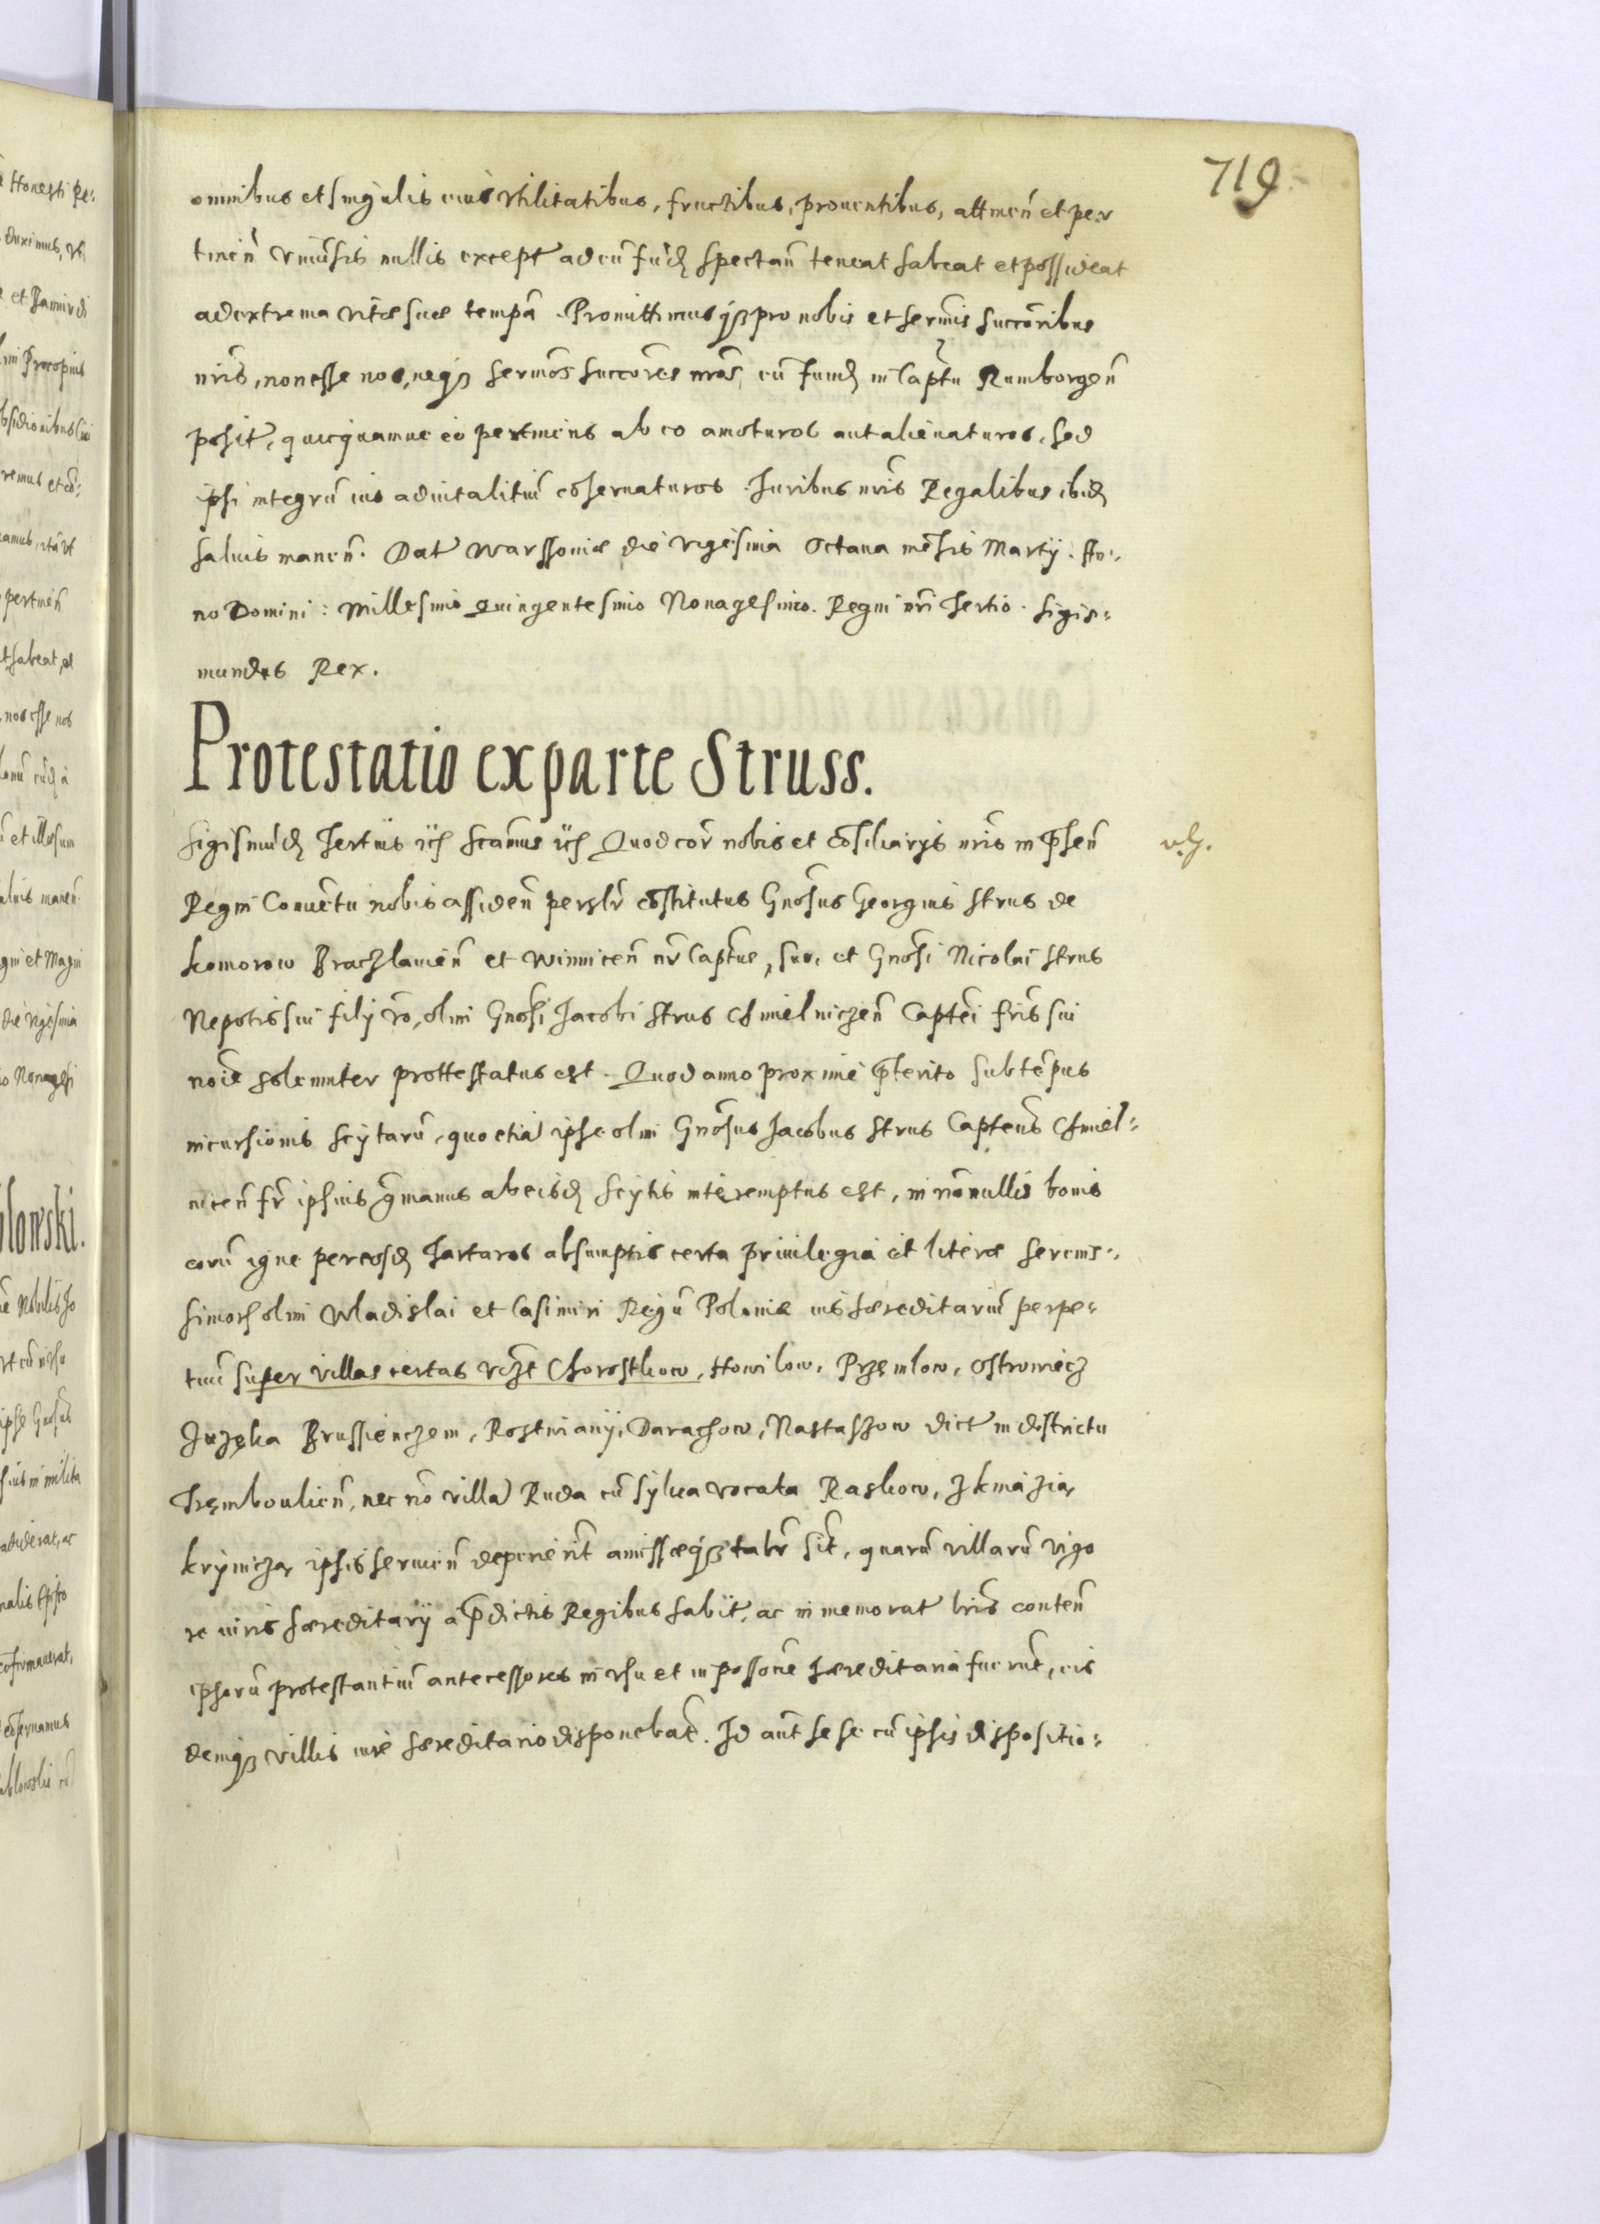 719
omnibus et singulis eius vtilitatibus, fructibus, prouentibus, attinen̄ et per
tinen̄ vniuēsis nullis except̄ ad eū fūd̄ spectan̄ teneat habeat et possideat
ad extrema vitæ suæ tempā. Promittimusq̄ȝ pro nobis et sermīs succōribus
nrīs, non esse nos, neq̄ȝ sermōs succōres nrōs, eū fund̄ in Captū Rumborgen̄
posit̄, quicquamue eo pertinens ab eo amoturos aut alienaturos, sed
ipsi integrū ius aduitalitiū cōseruaturos. Iuribus nrīs Regalibus ibid̄
saluis manen̄. Dat̄ Warssouiæ die vigesima Octaua mēsis Martij. An:
no Domini: Millesimo Quingentesimo Nonagesimo. Regni nrī Tertio. Sigis:
mundus Rex.
Protestatio ex parte Struss.
Sigismūd̄ Tertius Scāmus Quod cor̄ nobis et cōsiliarys nrīs in p̄sen̄
Regni Conuētu nobis assiden̄ persłr̄ cōstitutus Gnōsus Georgius Strus de
Komorow Braczlauien̄ et Winnicen̄ nr̄ Captūs, suo, et Gnōsi Nicolai Strus
Nepotis sui filij vō, olim Gnōsi Jacobi Strus Chmielniczen̄ Captēi frīs sui
noīe solemniter prottestatus est. Quod anno proximè p̄terito sub tēpus
incursionis Scytarū, quo etiā ipse olim Gnōsus Jacobus Strus Captēus Chmiel:
nicen̄ fr̄ ipsius ḡmanus ab eisd̄ Scytis interemptus est, in nōnullis bonis
eorū igne per eosd̄ Tartaros absumptis certa priuilegia et literæ Serenis:
simorū olim Wladislai et Casimiri Regū Poloniæ ius hæreditariū perpe:
tuū super villas certas vcȝt Chorostkow, Howilow, Przemlow, Ostrowiecz
Juzefka Brussienczem, Rostwianij, Darachow, Nastaszow dict̄ in districtu
Trembowlien̄, nec nō villā Ruda cū sylua vocata Raskow, Z kmazią
kryniczą ipsis seruien̄ deperierīt amissæq̄ȝ sīt, quarū villarū vigo
re iuris hæreditarij à p̄dictis Regibus habit̄, ac in memorat̄ lrīs conten̄
ipsorū protestantiū antecessores in vsu et in possōne hæreditaria fuerūt, eis
demq̄ȝ villis iure hæreditario disponebāt. Id aut̄ sese cū ipsis dispositio: